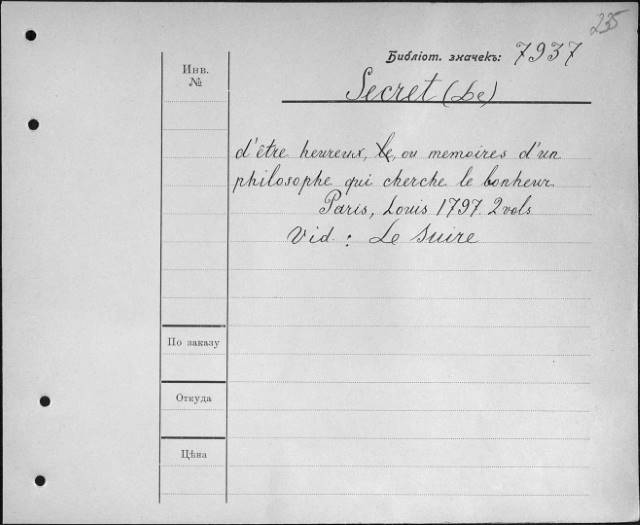 235
Библіот. значекъ: 7937
Инв.
№
Secret (Le)
d'être heureux, le, ou memoires d'un
philosophe qui cherche le bonheur
Paris, Louis 1797. 2 vols
Vid : Le Suire
По заказу
Откуда
Цѣна